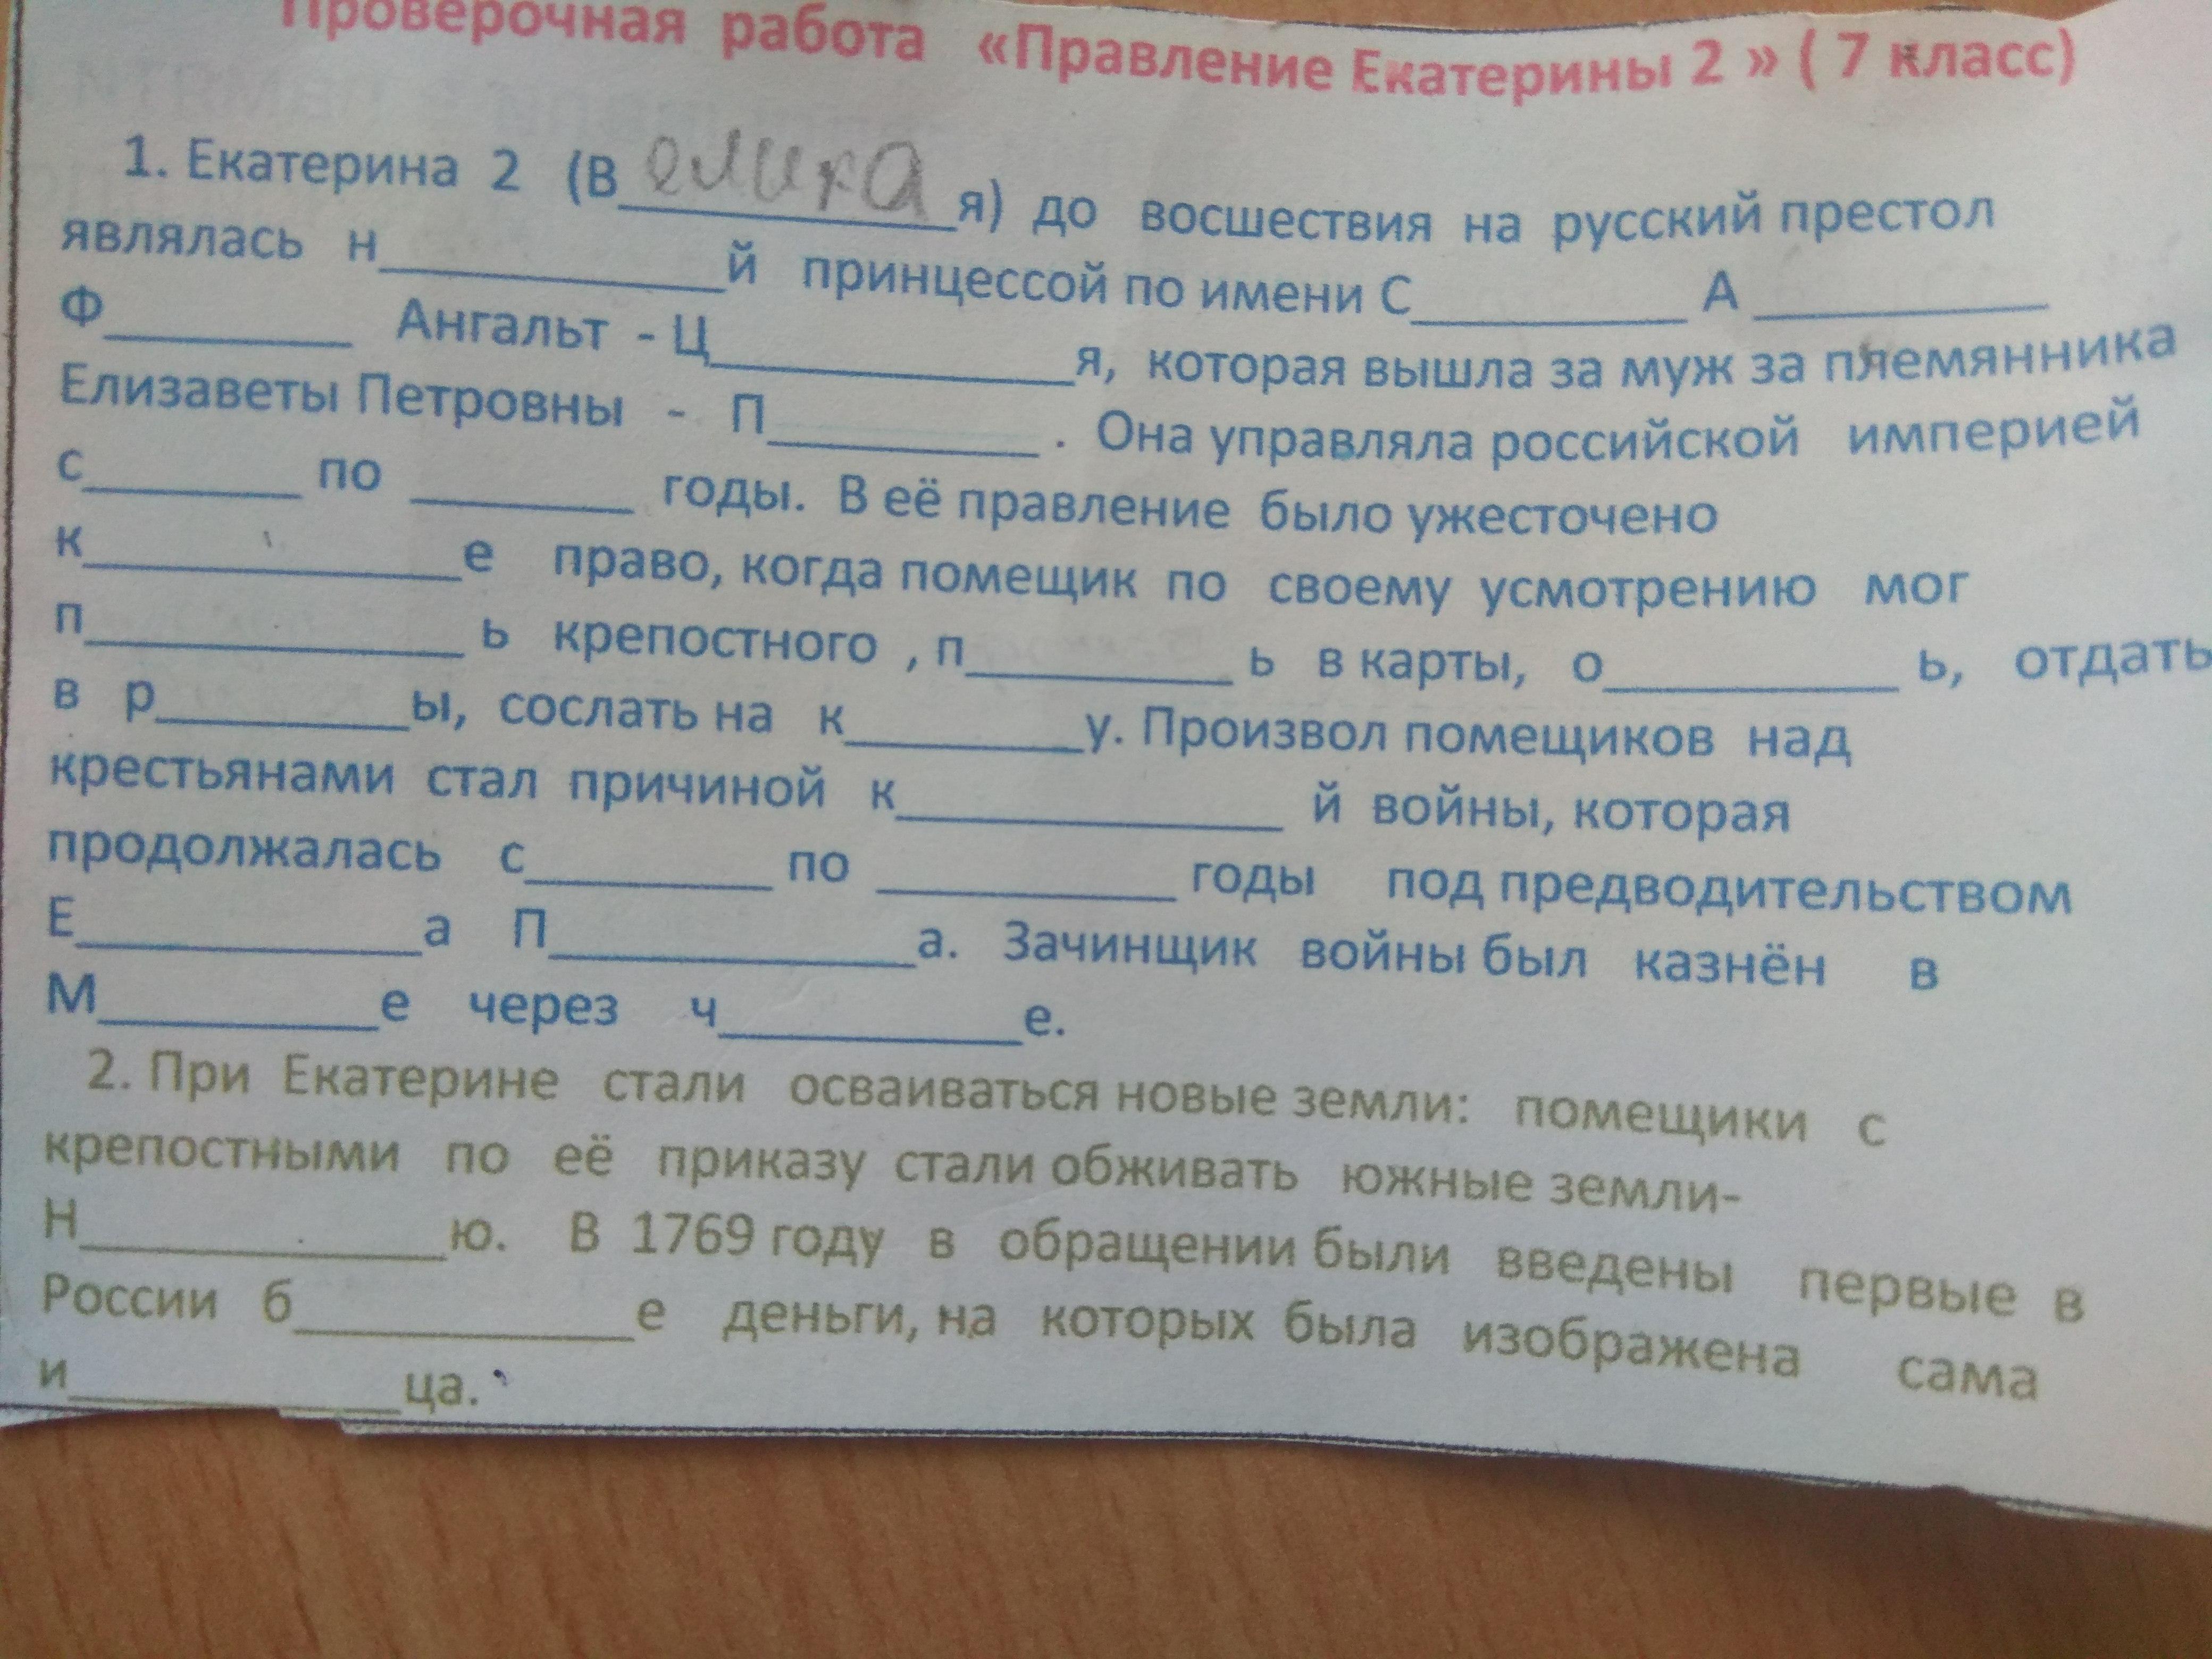 Проверочная работа «Правление Екатерины 2 » ( 7 класс)
1. Екатерина 2 (Велика я) до восшествия на русский престол
являлась н____________й принцессой по имени С__________ А __________
Ф_________ Ангальт - Ц_____________я, которая вышла за муж за племянника
Елизаветы Петровны - П__________ . Она управляла российской империей
с________ по ________ годы. В её правление было ужесточено
к______________е право, когда помещик по своему усмотрению мог
п______________ ь крепостного , п__________ ь в карты, о___________ ь, отдать
в р_________ы, сослать на к_________у. Произвол помещиков над
крестьянами стал причиной к______________ й войны, которая
продолжалась с_________ по ___________ годы под предводительством
Е____________а П_____________а. Зачинщик войны был казнён в
М__________е через ч___________е.
2. При Екатерине стали осваиваться новые земли: помещики с
крепостными по её приказу стали обживать южные земли-
Н_____________ю. В 1769 году в обращении были введены первые в
России б____________е деньги, на которых была изображена сама
и____________ца.